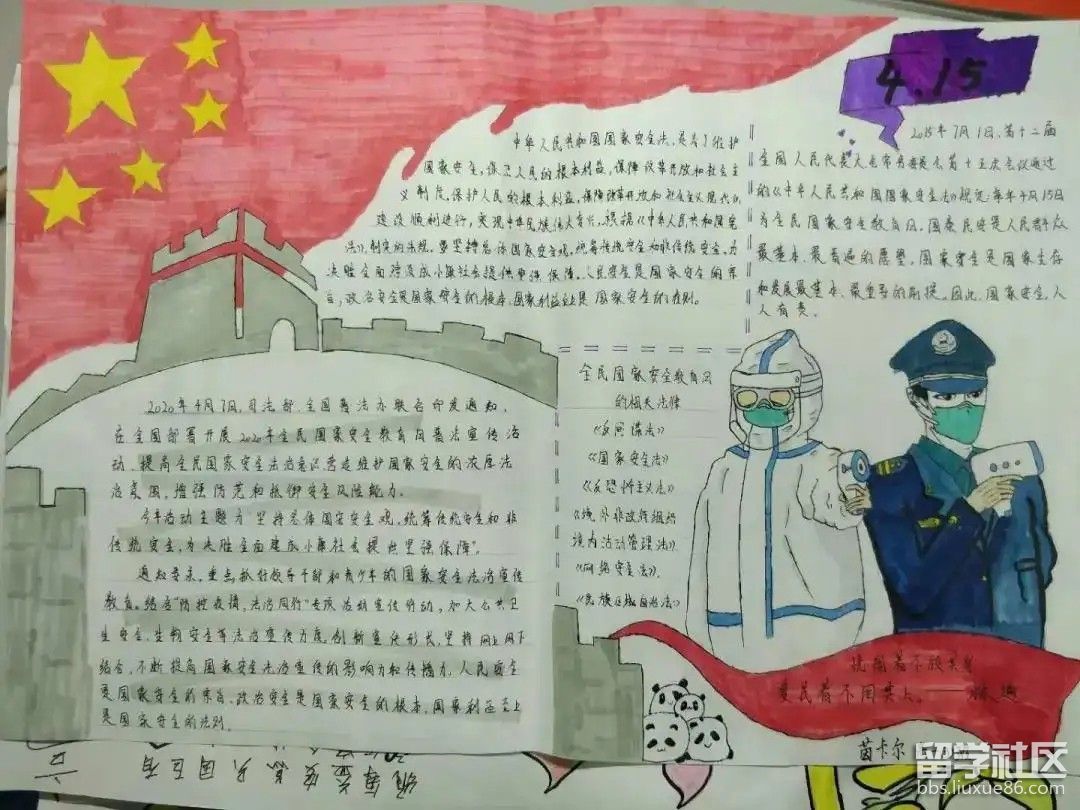 4.15
中华人民共和国国家安全法,是为了维护
国家安全,保卫人民的根本利益,保障改革开放和社会主
义制度,保护人民的根本利益,保障改革开放和社会主义现代化
建设顺利进行,实现中华民族伟大复兴,根据《中华人民共和国宪
法》,制定的法规。要坚持总体国家安全观,统筹传统安全和非传统安全,为
决胜全面建成小康社会提供坚强保障。人民安全是国家安全的宗
旨,政治安全是国家安全的根本,国家利益至上是国家安全的准则。
2015年7月1日,第十二届
全国人民代表大会常务委员会第十五次会议通过
的《中华人民共和国国家安全法》规定:每年4月15日
为全民国家安全教育日。国泰民安是人民群众
最基本、最普遍的愿望。国家安全是国家生存
和发展最基本、最重要的前提。因此,国家安全,人
人有责。
2020年4月7日,司法部、全国普法办联合印发通知,
在全国部署开展2020年全民国家安全教育日普法宣传活
动,提高全民国家安全法治意识,营造维护国家安全的浓厚法
治氛围,增强防范和抵御安全风险能力。
今年活动主题为"坚持总体国家安全观,统筹传统安全和非
传统安全,为决胜全面建成小康社会提供坚强保障"。
通知要求,重点抓好领导干部和青少年的国家安全法治宣传
教育。结合"防控疫情,法治同行"专项法治宣传行动,加大公共卫
生安全、生物安全等法治宣传力度,创新宣传形式,坚持网上网下
结合,不断提高国家安全法治宣传的影响力和传播力。人民安全
是国家安全的宗旨,政治安全是国家安全的根本,国家利益至上
是国家安全的准则。
全民国家安全教育日
的相关法律
《反间谍法》
《国家安全法》
《反恐怖主义法》
《境外非政府组织
境内活动管理法》
《网络安全法》
《民族区域自治法》
茵卡尔
留学社区
bbs.liuxue86.com